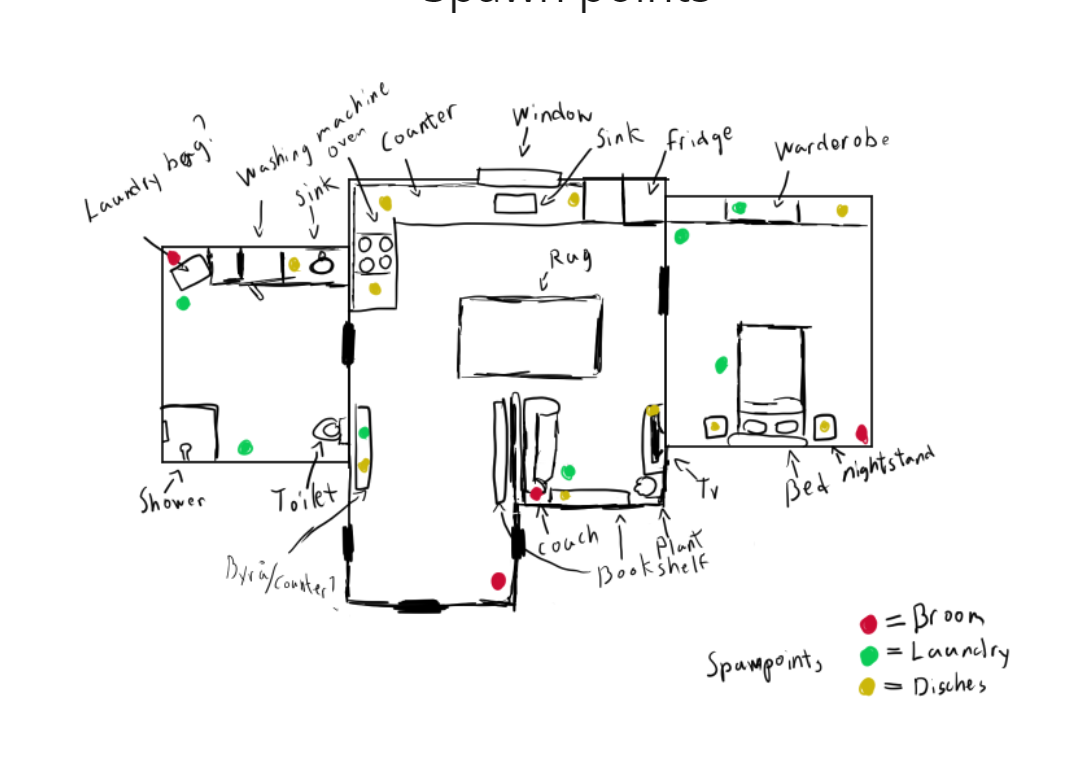 Spawn points
Laundry bag?
Washing machine
sink
oven
Counter
Window
Sink
fridge
Warderobe
Rug
Shower
Toilet
Byrå/counter?
couch
Bookshelf
Plant
Tv
Bed
nightstand
Spawnpoints
= Broom
= Laundry
= Disches